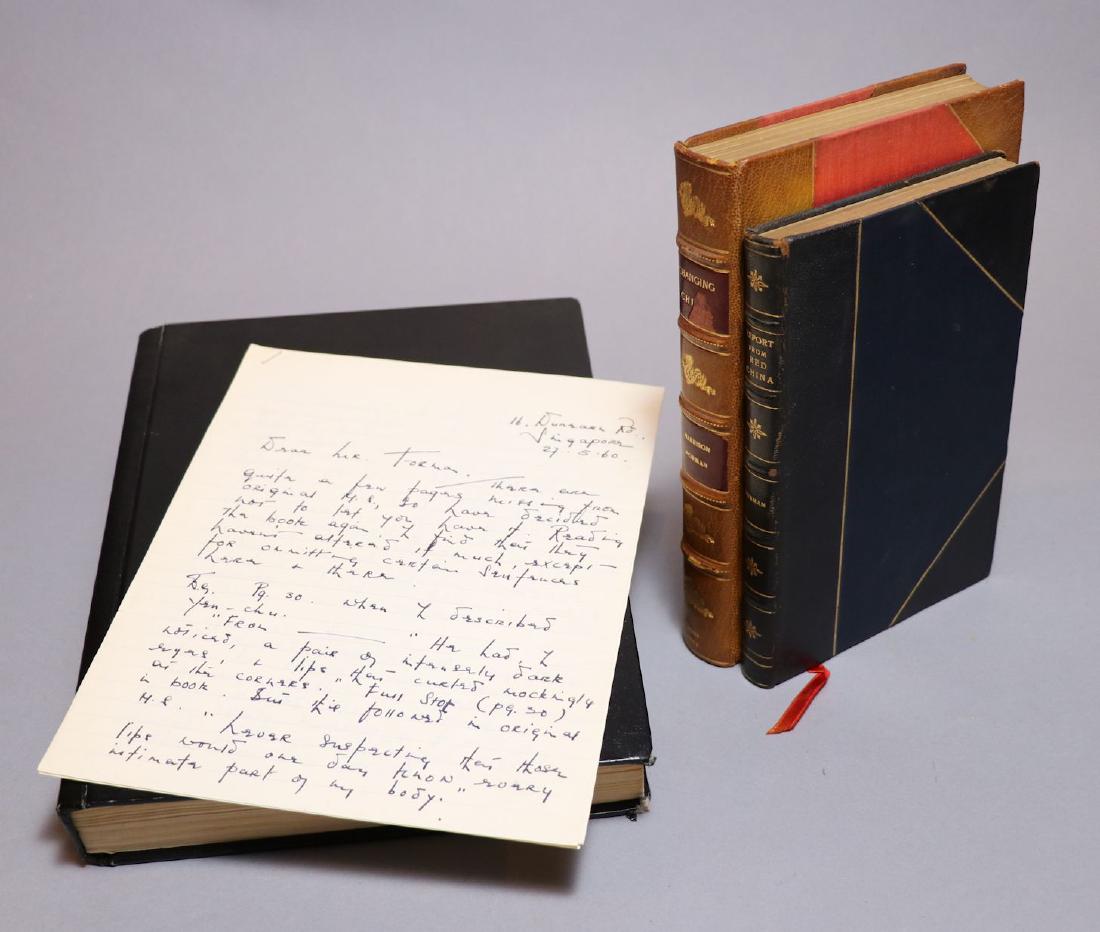 16. Dunearn Rd.,
Singapore
27. 5. 60.
Dear Mr. Forman.
There are
quite a few pages missing from
original M.S, so have decided
not to let you have it. Reading
the book again I find that they
haven't altered it much, except
for ommitting certain sentences
here & there.
Eg. Pg. 30. when I described
Yen-chu.
"From " He had, I
noticed, a pair of intensely dark
eyes, & lips that curled mockingly
at the corners." Full Stop (pg. 30)
in book. But this followed in original
M.S.
" Never suspecting that those
lips would one day know every
intimate part of my body."
CHANGING
CHI
HARRISON
FORMAN
REPORT
FROM
RED
CHINA
FORMAN